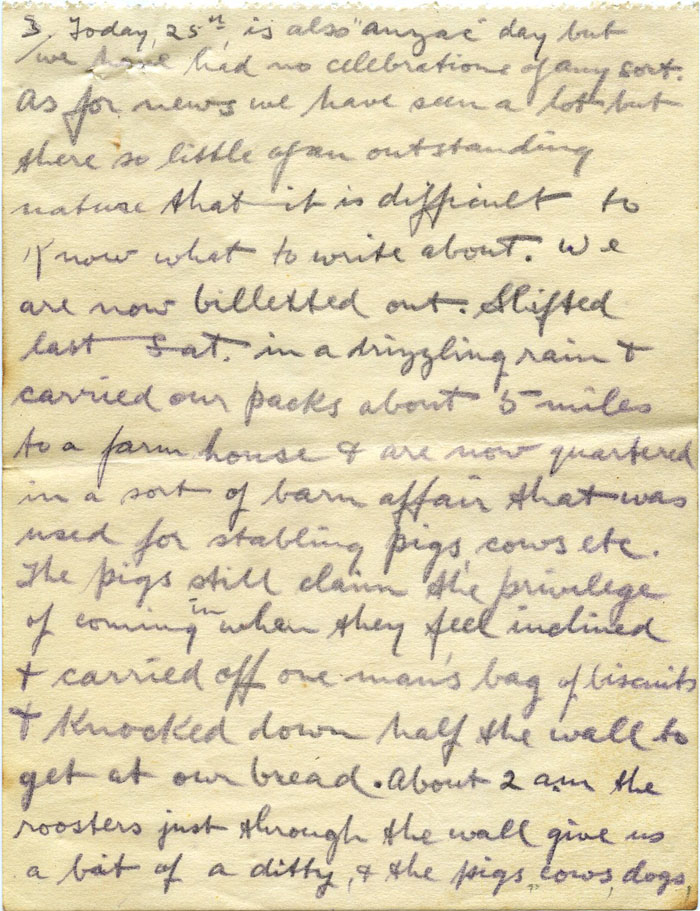 3. Today, 25th is also "anzac" day but
we have had no celebrations of any sort.
As for news we have seen a lot but
there so little of an outstanding
nature that it is difficult to
Know what to write about. We
are now billetted out. Shifted
last Sat. in a drizzling rain &
carried our packs about 5 miles
to a farm house & are now quartered
in a sort of barn affair that was
used for stabling pigs, cows etc.
The pigs still claim the privilege
of coming in when they feel inclined
& carried off one man's bag of biscuits
& Knocked down half the wall to
get at our bread. About 2 am the
roosters just through the wall give us
a bit of a ditty, & the pigs, cows, dogs,